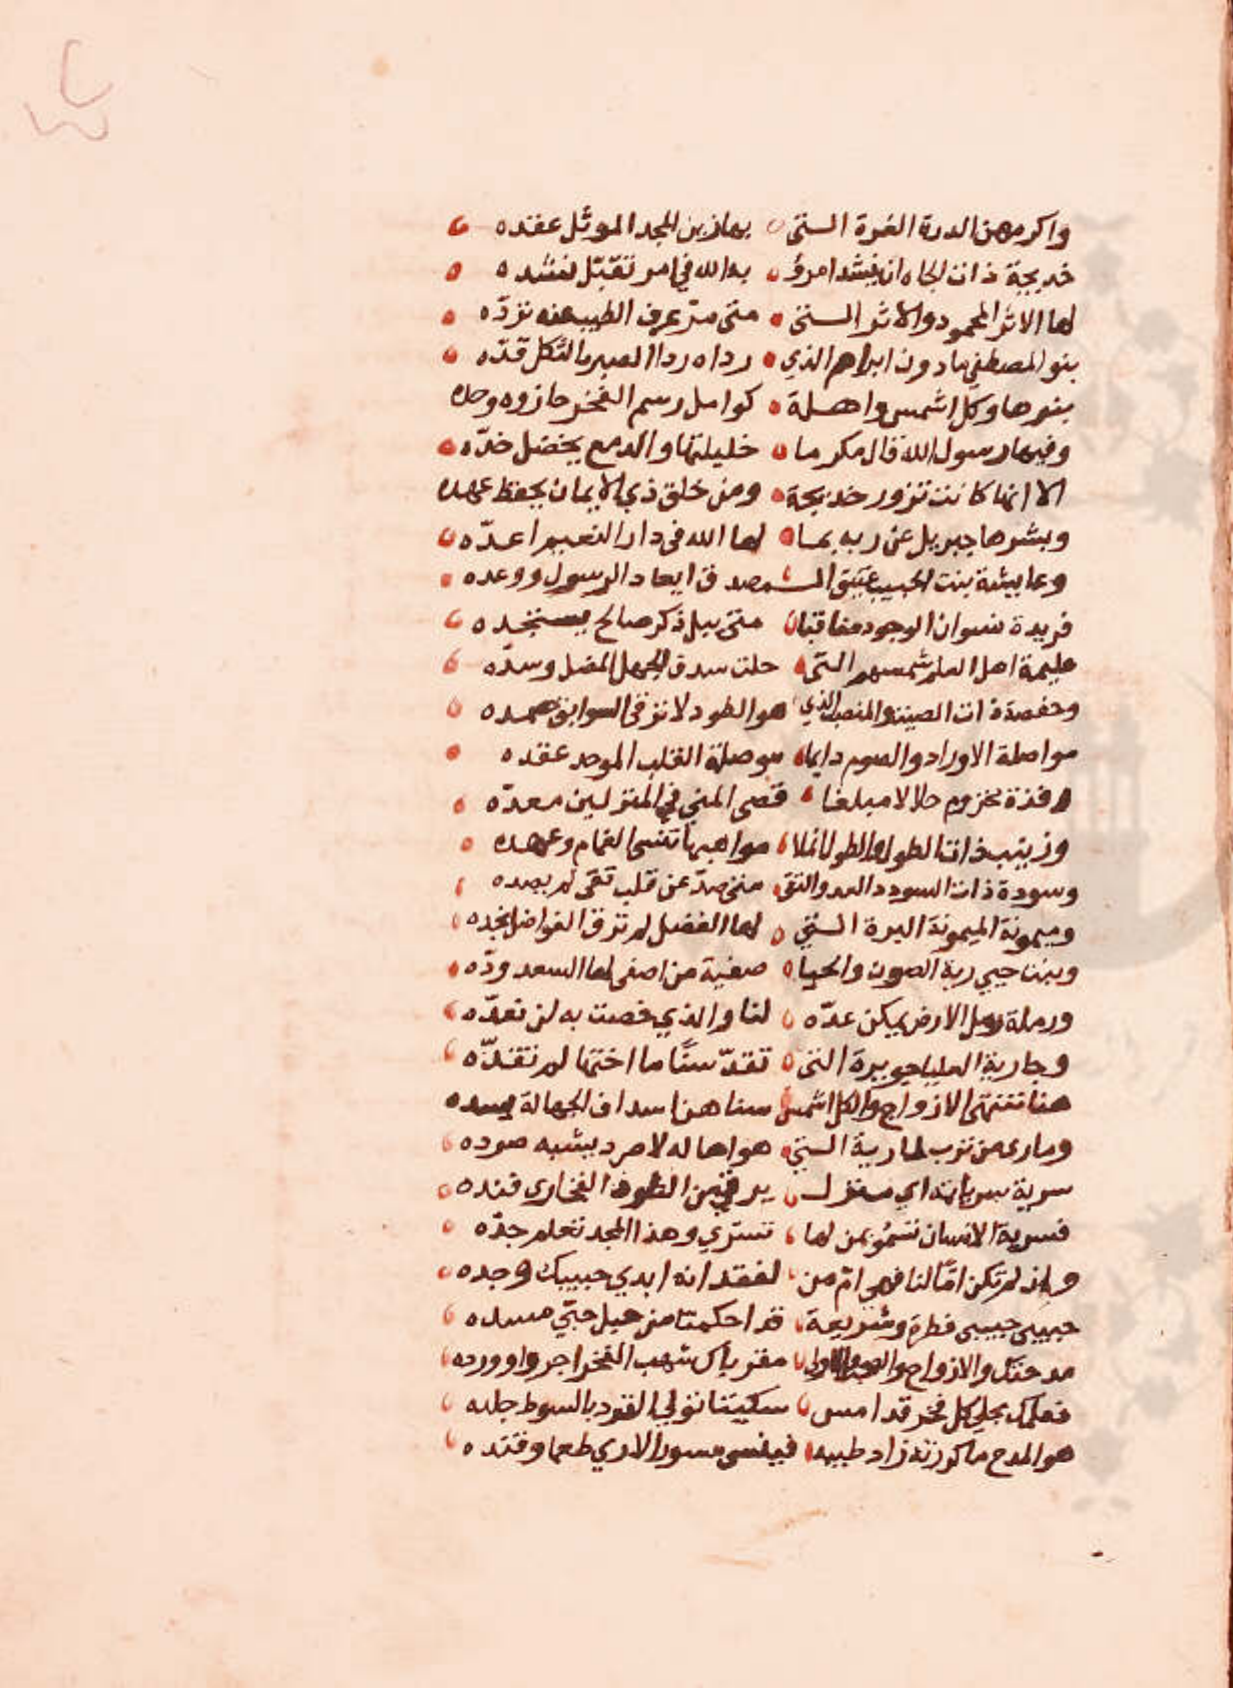 واكرمهن الدرة الغرة التي بها ازين المجد الموثل عقده
خديجة ذات الجاه ان ينشد امرؤ به الله في امر تقبّل نشده
لها الاثر المحمود والاثر التي متى مرّ عرف الطيب عنه نردّه
بنو المصطفى مادون ابراهم الذي رداه ردا الصبر بالثكل قدّه
بنورها وكل اشمس واهلة كوامل رسم الفخر حازوه وحده
وفيها رسول الله قال مكرما خليلتها والدمع يخضل خدّه
الا انها كانت تزور خديجة ومن خلق ذي الايمان يحفظ عهده
وبشرها جبريل عن ربه بما لها الله في دار النعيم اعدّه
وعايشة بنت الحبيب عتيق المصدق ايعاد الرسول ووعده
فريدة نسوان الوجود مناقبا متى يبل ذكر صالح يستجده
عليمة اهل العلم شمسهم التي جلت سدف الجهل المضل وسدّه
وحفصة ذات الصيت والمنصب الذي هو الطود لا نرقى السوابق
مواصلة الاوراد والصوم دايما موصلة القلب الموحد عقده
مخزوم حلالا مبلغا قصى المنى في المنزلين معدّه
وزينب ذات الطول والطول مواهبها تنسى الغمام وعهده
وسودة ذات السودد العد والتقى متى صدّ عن قلب تقى لم يصده
وميمونة الميمونة البرة التي لها الفضل لم ترق الفواضل نجده
وبنت حيي ربة الصون والحيا صفية من اصفى لها السعد ودّه
ورملة رمل الارض يمكن عدّه لنا والذي خصت به لن نعدّه
وجارية العليا جويرة التي تقدّ سنًا ما اختها لم تقدّه
هنا تنتهي الازواج والكل اشمس سناهن اسداف الجهالة يسده
ومارى من ترب لمارية التي هواها له لا مرد يشبه صوده
سرية سرياته اي منزل يرقى من الطود الفخارى فنده
فسرية الانسان تسمو بمن لها تسرّي وهذا المجد تعلم جدّه
وان لم تكن امّا لنا فهي امّ من لفقدانه ابدي حبيبك وجده
حبيبي حبيبي فطرة وشريعة قد احكمت من حبل حبّي مسده
مدحتك والازواج والصحب مقر بأن شهب الفخر اجروا وورده
فعلمك يجلي كل فخر قد امس سكيتا تولي القود بالسوط جلده
هو المدح ما كررته زاد طيبه فينسى مسور الاري طعما وقنده